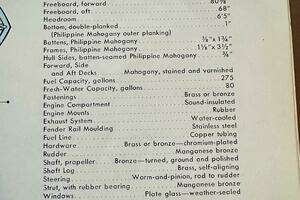 Freeboard, forward 80⅝"
Freeboard, aft 68"
Headroom 6'5"
Bottom, double-planked 1"
(Philippine Mahogany outer planking)
Battens, Philippine Mahogany ⅞" x 1¾"
Frames, Philippine Mahogany 1⅛" x 3½"
Hull Sides, batten-seamed Philippine Mahogany ¾"
Forward, Side
and Aft Decks Mahogany, stained and varnished
Fuel Capacity, gallons 275
Fresh-Water Capacity, gallons 80
Fastenings Brass or bronze
Engine Compartment Sound-insulated
Engine Mounts Rubber
Exhaust System Water-cooled
Fender Rail Moulding Stainless steel
Fuel Line Copper tubing
Hardware Brass or bronze—chromium-plated
Rudder Manganese bronze
Shaft, propeller Bronze—turned, ground and polished
Shaft Log Brass, self-aligning
Steering Worm-and-pinion, rod to rudder
Strut, with rubber bearing Manganese bronze
Windows Plate glass—weather-sealed